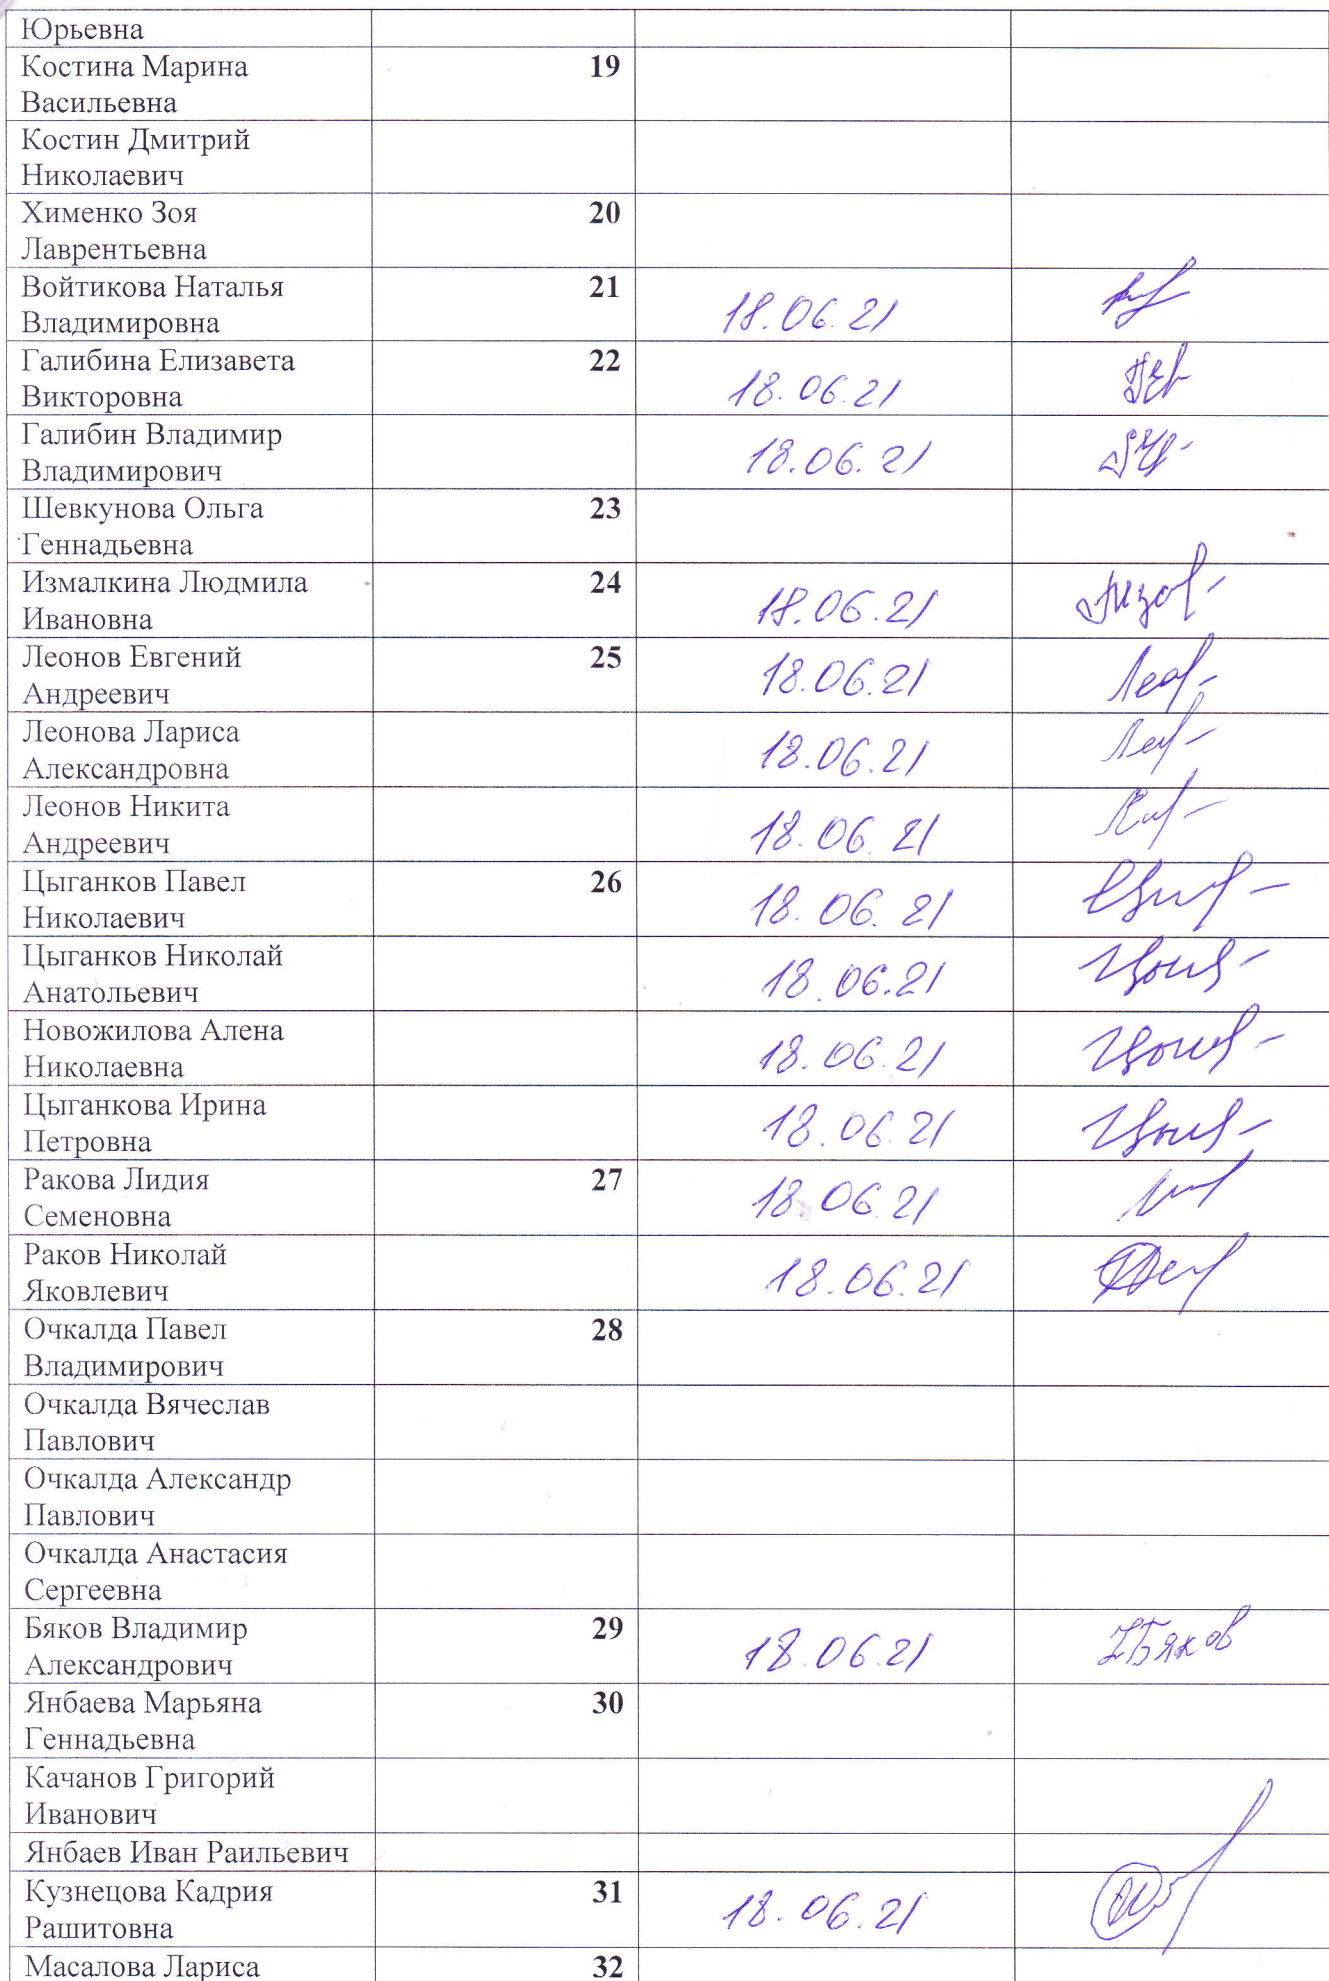 Юрьевна
Костина Марина 19
Васильевна
Костин Дмитрий
Николаевич
Хименко Зоя 20
Лаврентьевна
Войтикова Наталья 21
Владимировна 18.06.21
Галибина Елизавета 22
Викторовна 18.06.21
Галибин Владимир
Владимирович 18.06.21
Шевкунова Ольга 23
Геннадьевна
Измалкина Людмила 24
Ивановна 18.06.21
Леонов Евгений 25
Андреевич 18.06.21
Леонова Лариса
Александровна 18.06.21
Леонов Никита
Андреевич 18.06.21
Цыганков Павел 26
Николаевич 18.06.21
Цыганков Николай
Анатольевич 18.06.21
Новожилова Алена
Николаевна 18.06.21
Цыганкова Ирина
Петровна 18.06.21
Ракова Лидия 27
Семеновна 18.06.21
Раков Николай
Яковлевич 18.06.21
Очкалда Павел 28
Владимирович
Очкалда Вячеслав
Павлович
Очкалда Александр
Павлович
Очкалда Анастасия
Сергеевна
Бяков Владимир 29
Александрович 18.06.21 Бяков
Янбаева Марьяна 30
Геннадьевна
Качанов Григорий
Иванович
Янбаев Иван Раильевич
Кузнецова Кадрия 31
Рашитовна 18.06.21
Масалова Лариса 32